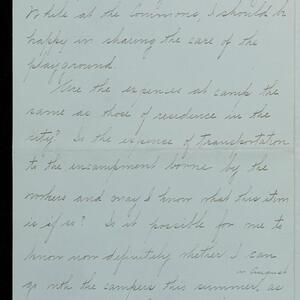 While at the Commons, I should be
happy in sharing the care of the
playground.
Are the expenses at camp the
same as those of residence in the
city? Is the expense of transportation
to the encampment borne by the
workers and may I know what this item
is if so? Is it possible for me to
know now definitely whether I can
in August
go with the campers this summer, as